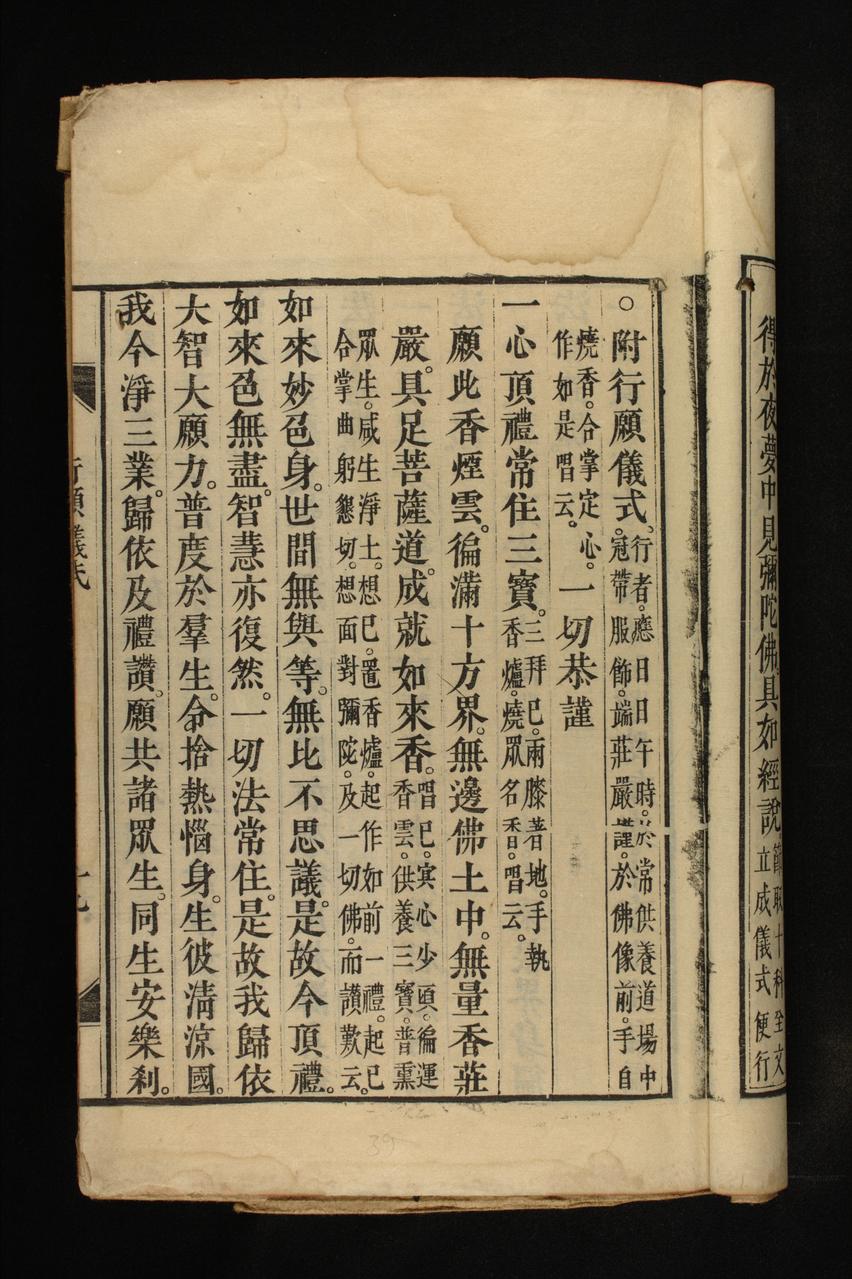 得於夜夢中見彌陀佛具如經說
節取十科全文
立成儀式便行
○附行願儀式、
行者。應日日午時。於常供養道場中
冠帶服飾。端莊嚴謹。於佛像前。手自
燒香。合掌定心。
作如是唱云。
一切恭謹
一心頂禮常住三寶。
三拜已。兩膝著地。手執
香爐。燒眾名香。唱云。
願此香煙雲。徧滿十方界。無邊佛土中。無量香莊
嚴。具足菩薩道。成就如來香。
唱已。冥心少頃。徧運
香雲。供養三寶。普熏
眾生。咸生淨土。想已。置香爐。起作如前一禮。起已
合掌曲躬懇切。想面對彌陀。及一切佛。而讚歎云。
如來妙色身。世間無與等。無比不思議。是故今頂禮。
如來色無盡。智慧亦復然。一切法常住。是故我歸依
大智大願力。普度於羣生。令捨熱惱身。生彼清涼國。
我今淨三業。歸依及禮讚。願共諸眾生。同生安樂剎。
行願儀式
39